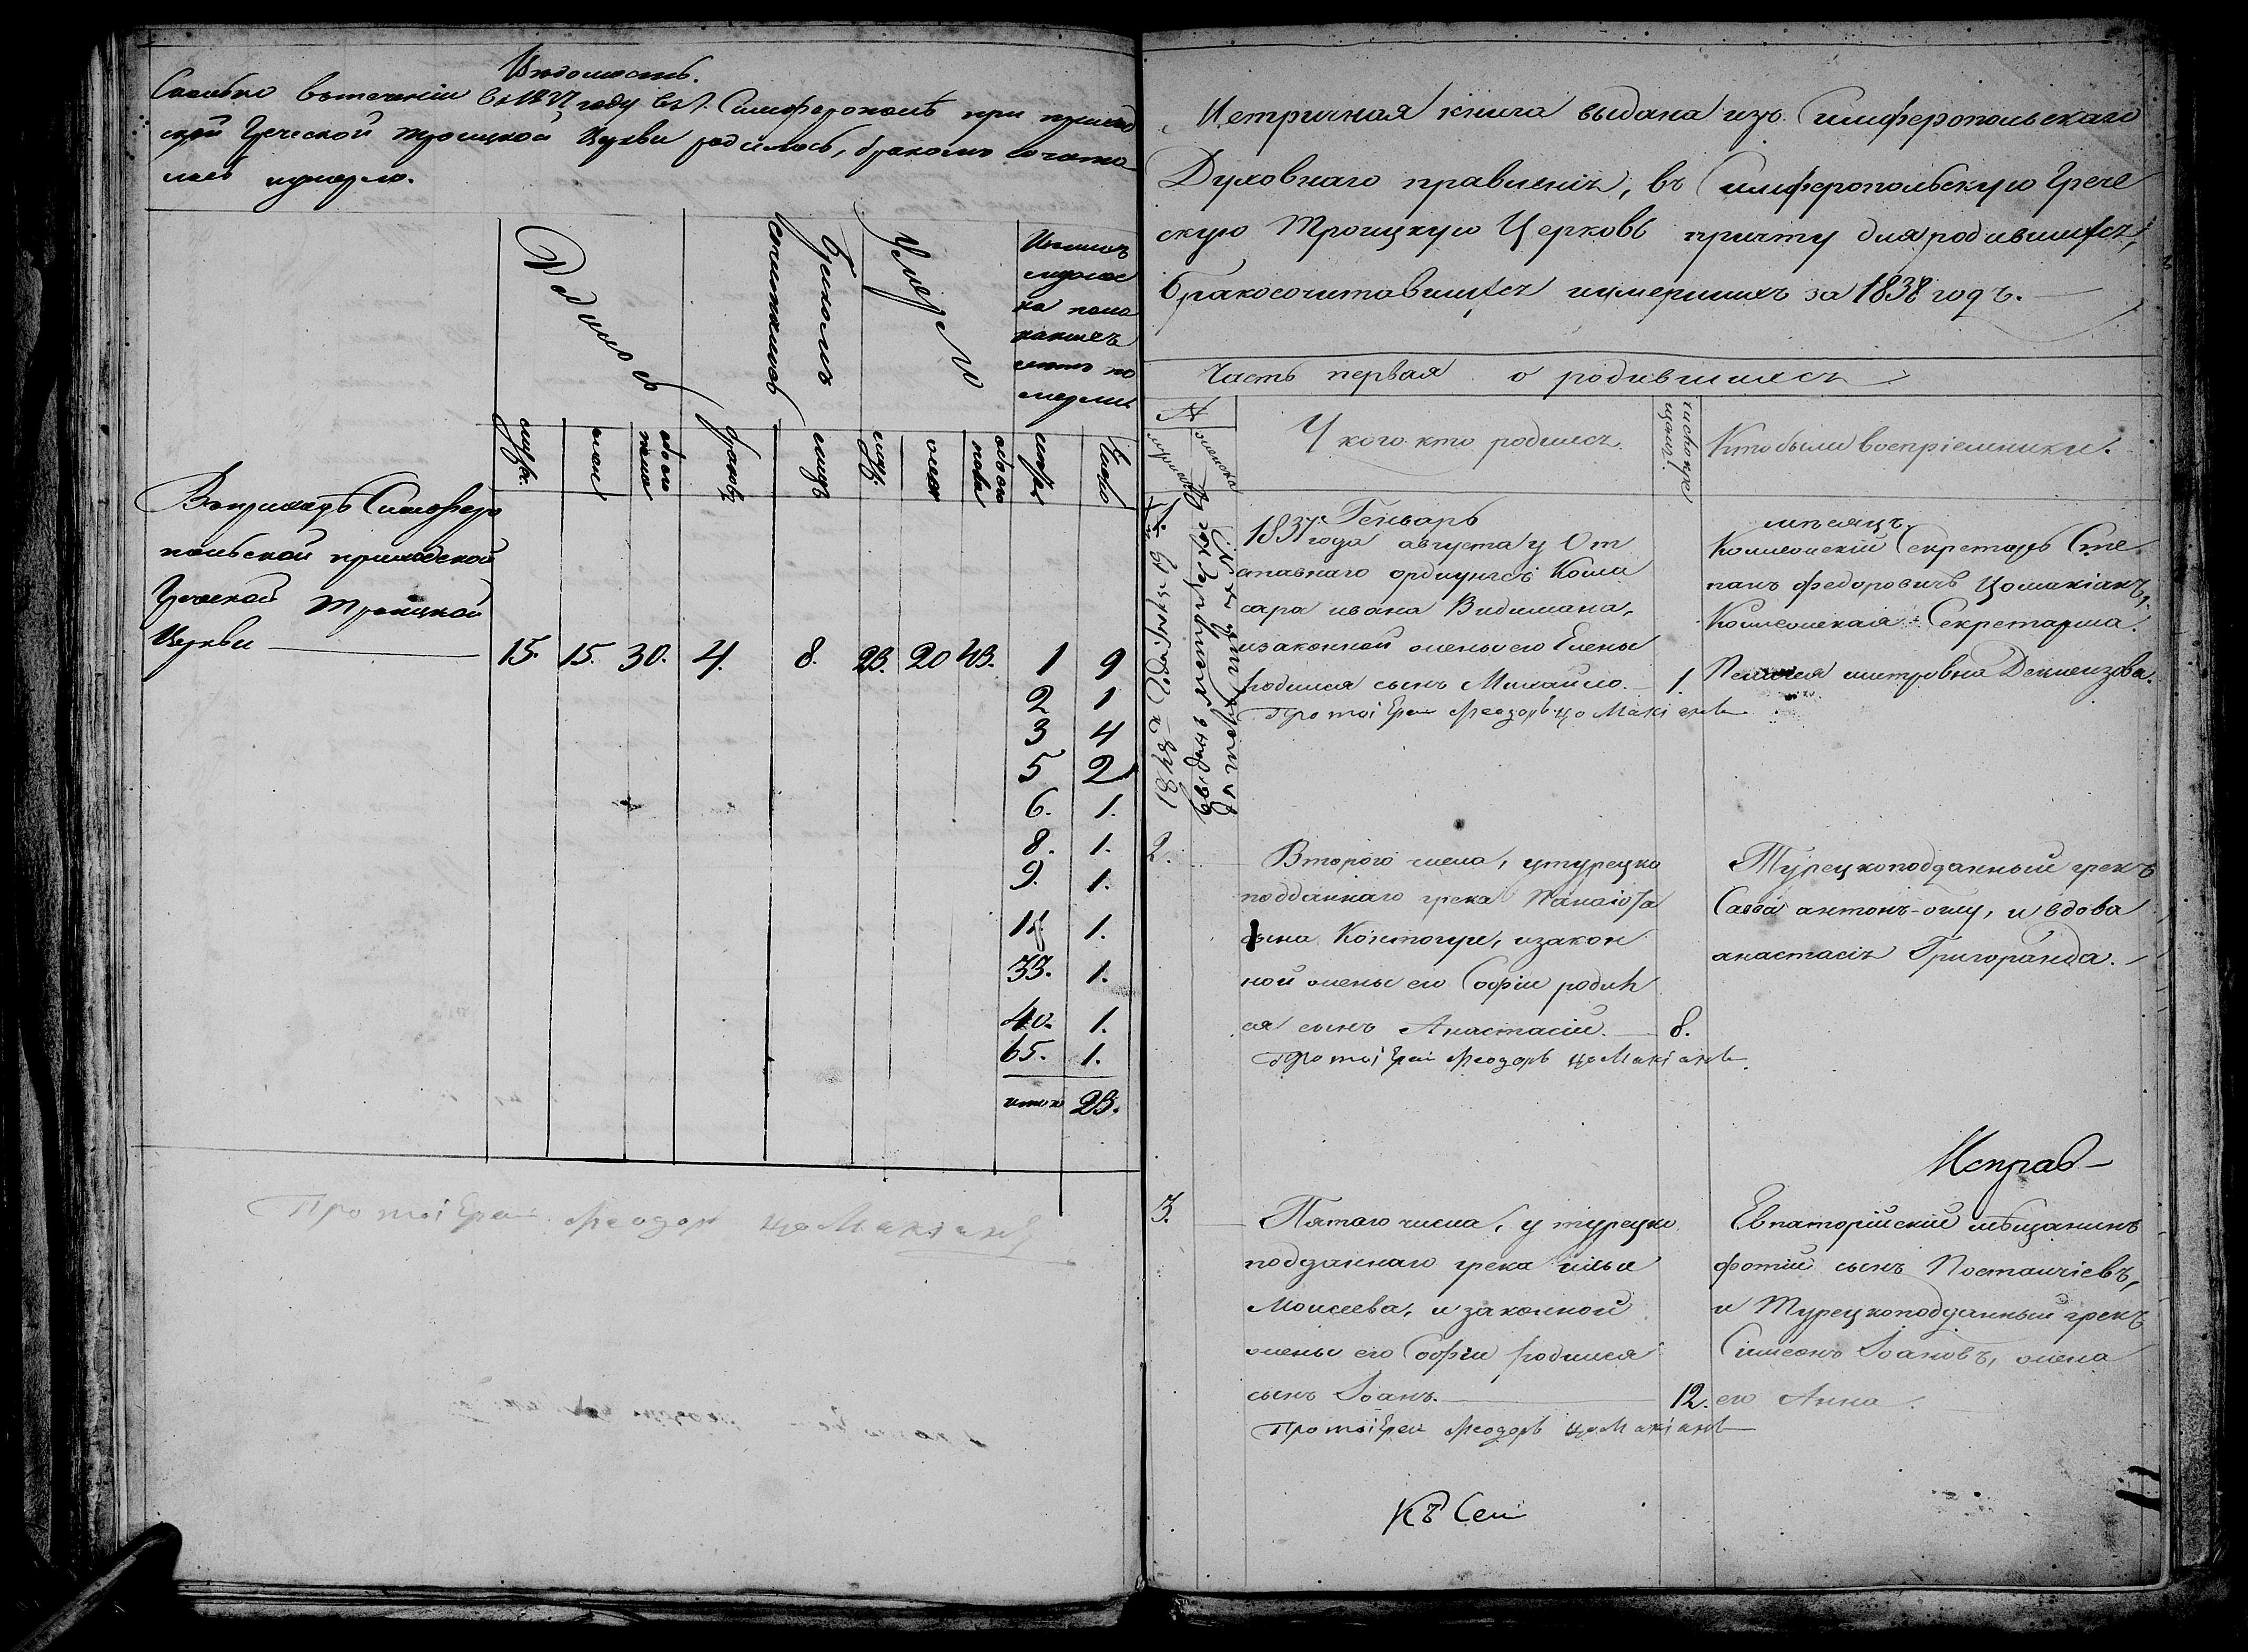 Ведомость.
Сколько в течении в 1837 году в г. Симферополѣ при приход
ской Греческой Троицкой Церкви родилось, браком сочета
лось и умерло.
Родилось
Браком
сочеталось
Умерло
мужес
ка пола
каких
лет по
мерли
муж.
жен
обоего
пола
браков
лиц
муж.
жен
обоего
пола
лета
Число
В приходѣ Симферо
польской приходской
Греческой Троицкой
Церкви
15. 15. 30. 4. 8. 23. 20 43. 1 9
2 1
3 4
5 2
6. 1.
8. 1.
9. 1.
1.
33. 1.
40. 1.
65. 1.
итого 23.
Протоіерей Феодор Цомакіанъ
Метричная книга выдана изъ Симферопольскаго
Духовнаго правленія, въ Симферопольскую Грече
скую Троицкую Церковь причту для родившихся,
бракосочитавшихся и умершихъ за 1838 годъ.
Часть первая о родившихся
№
мужеска
женска
У кого кто родился.
число кре
щен.
Кто были воспріемники.
Генварь
мѣсяцъ.
1837 года августа у От
ставнаго ордунгсъ Коми
сара ивана Видимана,
и законной жены его Елены
родился сынъ Михаило. 1.
Протоіерей Феодоръ Цомакіанъ
Коллежскій Секретарь Сте
панъ Федоровичъ Цомакіанъ,
Коллежская Секретарша
2.
Второго числа, у турецко
подданнаго грека Панаіота
сына Костогуе, и закон
ной жены его Софіи родил
ся сынъ Анастасій. 8.
Протоіерей Феодоръ Цомакіанъ.
Турецкоподданный грекъ
Савва антонъ-оглу, и вдова
анастасія Григоранда.
Исправ-
3.
Пятаго числа, у турецко
подданнаго грека ильи
Моисеева, и законной
жены его Софіи родился
сынъ Іоанъ. 12.
Протоіерей Феодоръ Цомакіанъ
Евпаторійский мѣщанинъ
фотій сынъ
и Турецкоподданный грекъ
Симеонъ Іоановъ, жена
его Анна.
Къ Сей